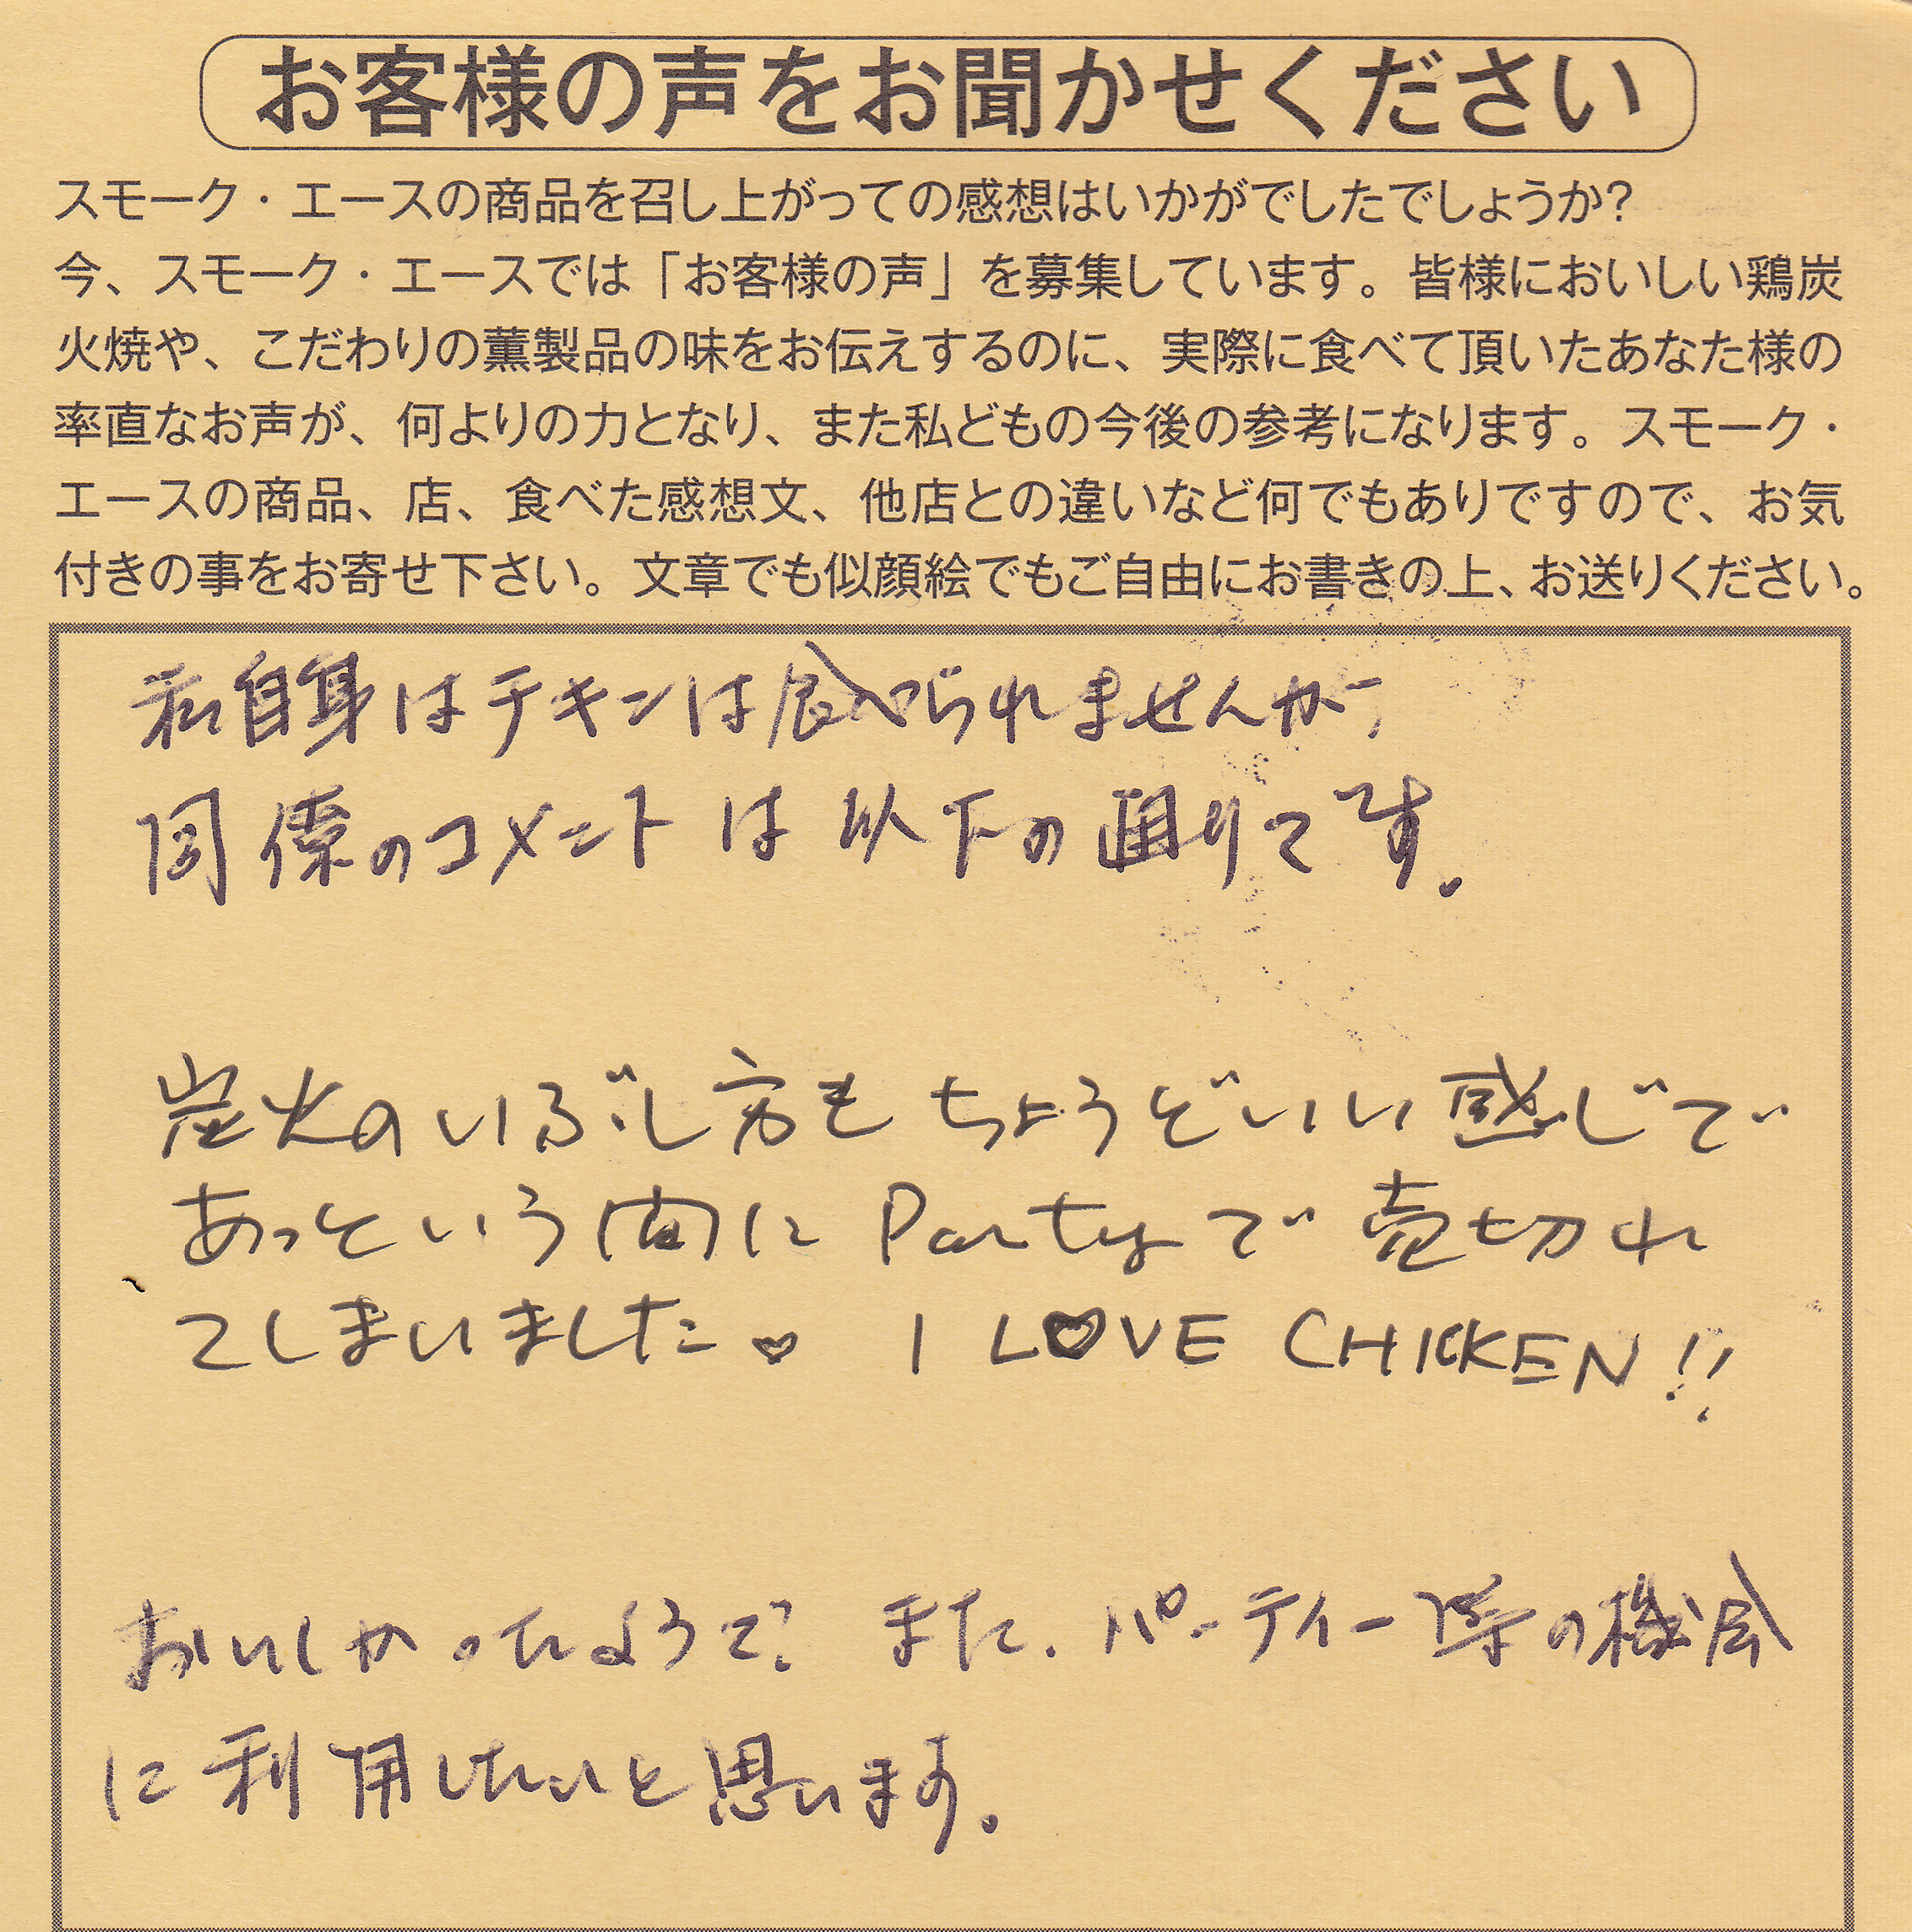 お客様の声をお聞かせください
スモーク・エースの商品を召し上がっての感想はいかがでしたでしょうか?
今、スモーク・エースでは「お客様の声」を募集しています。皆様においしい鶏炭
火焼や、こだわりの薫製品の味をお伝えするのに、実際に食べて頂いたあなた様の
率直なお声が、何よりの力となり、また私どもの今後の参考になります。スモーク・
エースの商品、店、食べた感想文、他店との違いなど何でもありですので、お気
付きの事をお寄せ下さい。文章でも似顔絵でもご自由にお書きの上、お送りください。
私自身はチキンは食べられませんが、
同僚のコメントは以下の通りです。
炭火のいぶし方もちょうどいい感じで
あっという間にPartyで売切れ
てしまいました♡ I L♡VE CHICKEN!!
おいしかったようで、また、パーティー等の機会
に利用したいと思います。